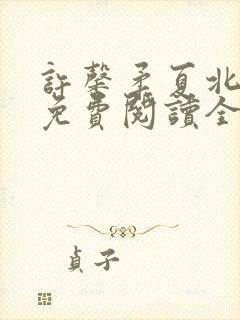 許馨矛夏北
免費閱讀全
貞子